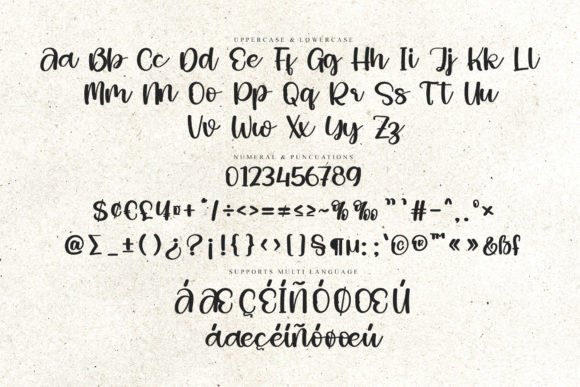 UPPERCASE & LOWERCASE
Aa Bb Cc Dd Ee Ff Gg Hh Ii Jj Kk Ll
Mm Nn Oo Pp Qq Rr Ss Tt Uu
Vv Ww Xx Yy Zz
NUMERAL & PUNCUATIONS
0123456789
$¢€£¥¤+*/÷<>=≠≤≥~%‰"'#-^,.°×
@∑_±()¿?¡!{}‹›[]§¶µ:;'©®™«»&ßf
SUPPORTS MULTI LANGUAGE
ÁÆÇÉÍÑÓØŒÚ
áæçéíñóøœú